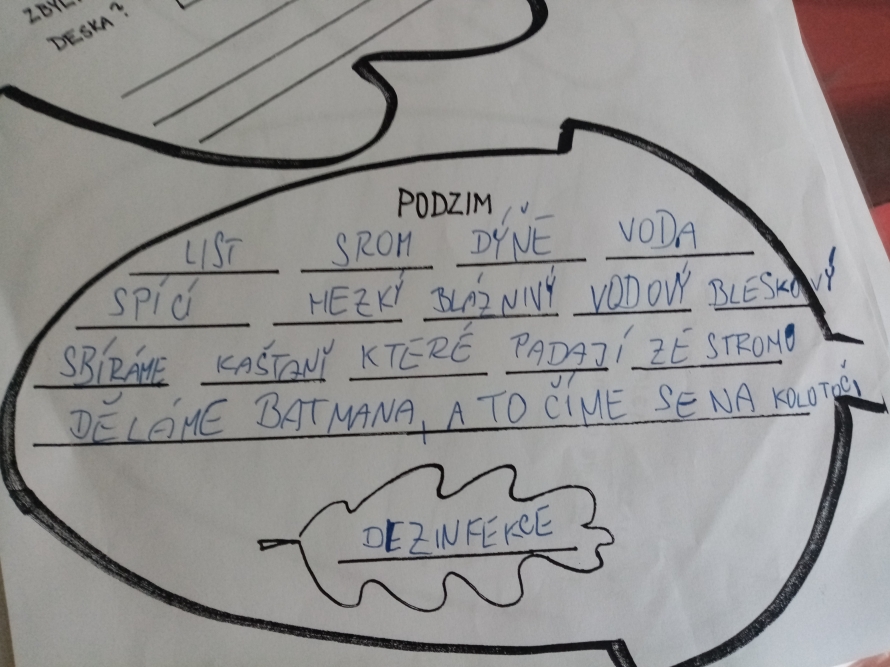 DESKA?
PODZIM
LIST SROM DÝŇE VODA
SPÍCÍ HEZKÝ BLÁZNIVÝ VODOVÝ BLESKOVÝ
SBÍRÁME KAŠTANÍ KTERÉ PADAJÍ ZE STROMO
DĚLÁME BATMANA, A TOČÍME SE NA KOLOTOČI
DEZINFEKCE